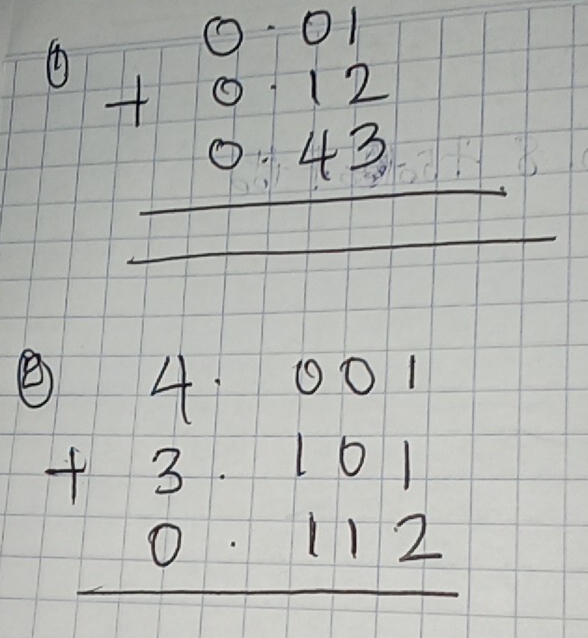 ① 0.01
+ 0.12
0.43
② 4.001
+ 3.101
0.112